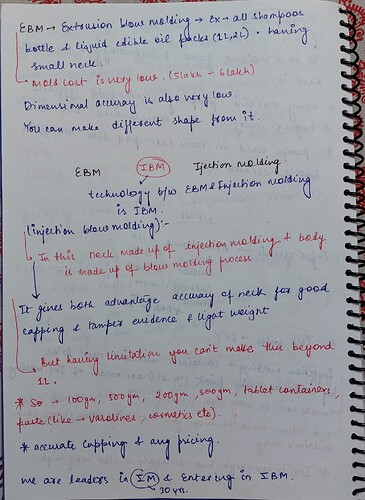 EBM → Extrusion blow molding → ex → all shampoos
bottle & liquid edible oil packs (1L, 2L). having
small neck.
→ Mold cost is very low. (5lakh - 6lakh)
Dimensional accuracy is also very low.
You can make different shape from it.
EBM IBM Ijection molding
technology b/w EBM & Injection molding
is IBM.
(injection blow molding):-
→ In this neck made up of injection molding & body
is made up of blow molding process
It gives both advantage accuracy of neck for good
capping & tamper evidence & light weight
→ but having limitation you can't make this beyond
1L.
* So → 100gm, 500gm, 200gm, 300gm, tablet containers,
paste (like → vasolines, cosmetics etc).
* accurate capping & any pricing.
we are leaders in IM & Entering in IBM.
→ 30yrs.